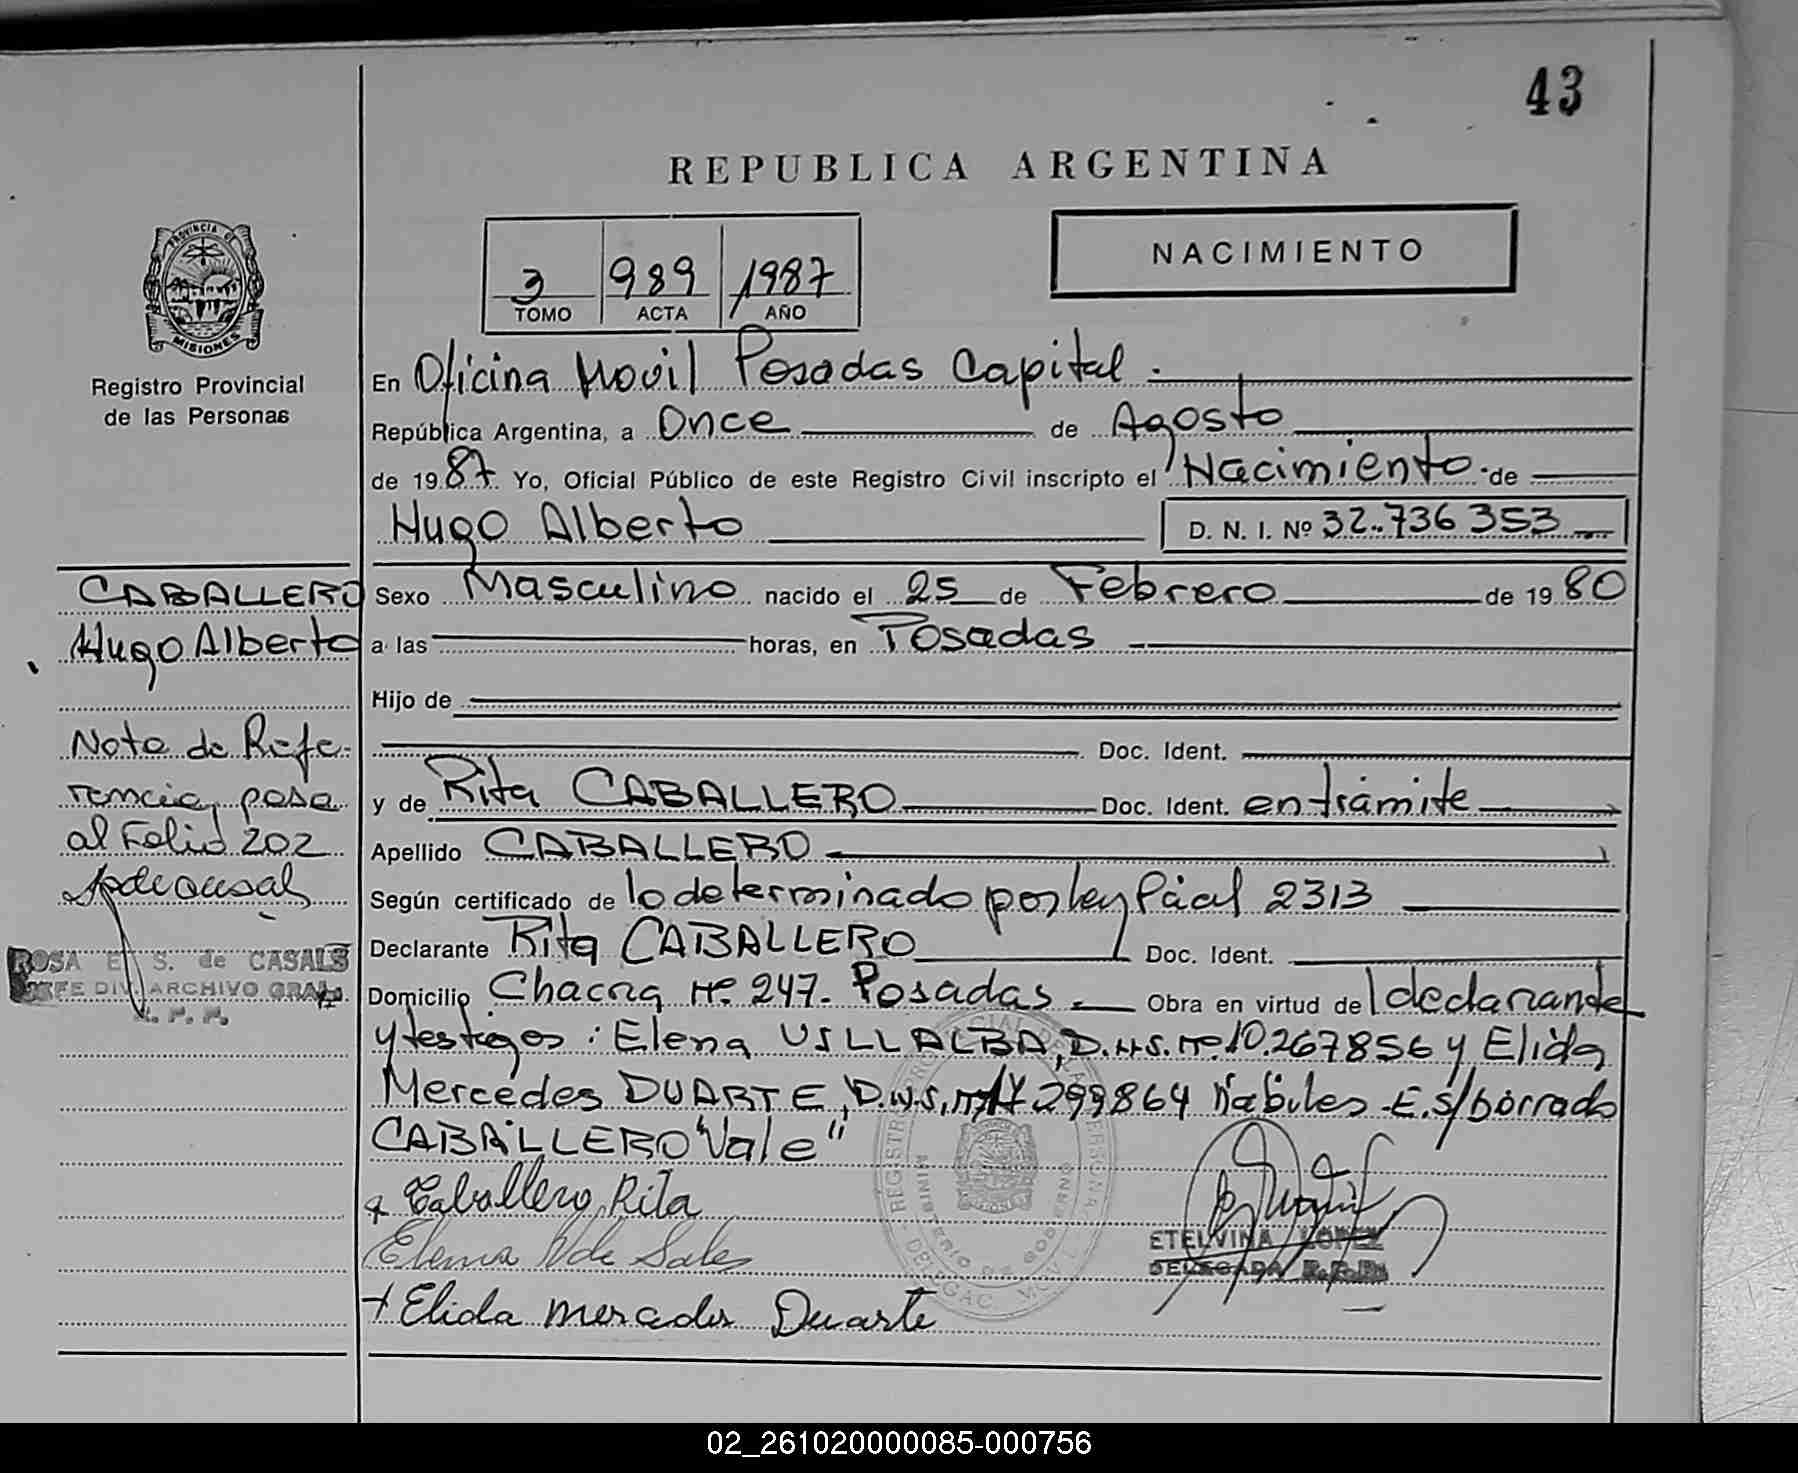 43
REPUBLICA ARGENTINA
NACIMIENTO
3 989 1987
TOMO ACTA AÑO
PROVINCIA DE
MISIONES
Registro Provincial
de las Personas
En Oficina Movil Posadas Capital.
República Argentina, a Once de Agosto
de 1987. Yo, Oficial Público de este Registro Civil inscripto el Nacimiento de
Hugo Alberto D. N. I. Nº 32.736 353
CABALLERO
Hugo Alberto
Sexo Masculino nacido el 25 de Febrero de 1980
a las horas, en Posadas
Hijo de
Doc. Ident.
y de Rita CABALLERO Doc. Ident. en trámite
Apellido CABALLERO
Según certificado de lo determinado por ley Pcial 2313
Declarante Rita CABALLERO Doc. Ident.
Domicilio Chacra Nº 247. Posadas Obra en virtud de declarante
y testigos: Elena VILLALBA, D.N.I. Nº 10.267856 y Elida
Mercedes DUARTE, D.N.I. 299864 hábiles -E. s/borrado
CABALLERO "Vale"
Caballero, Rita
Elena V de Sales
Elida Mercedes Duarte
Nota de Refe-
rencia, pasa
al Folio 202
ROSA E. S. de CASALS
JEFE DIV. ARCHIVO GRAL.
R. P. P.
ETELVINA LOPEZ
DELEGADA R.P.P.
02_261020000085-000756